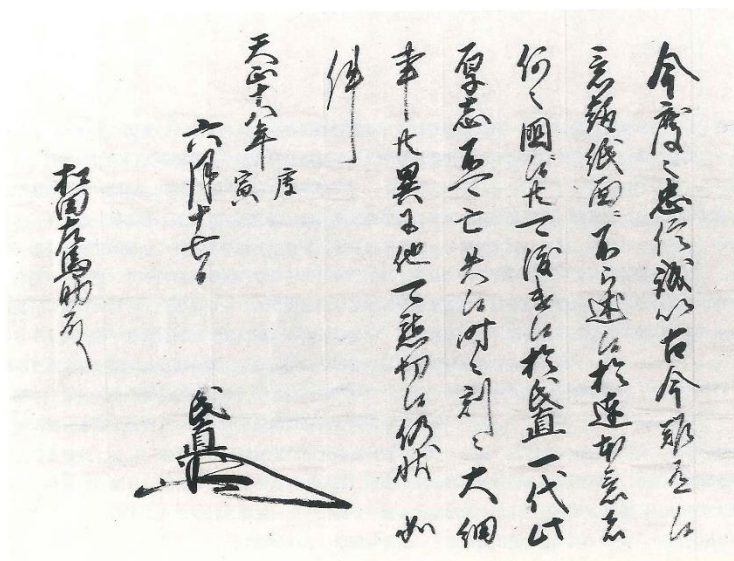 今度之忠信誠以古今難有候
意趣紙面不可述候於達本意者
何之国成共可候於氏直一代此
厚志不可亡失候時之刻之大細
事共異于他可懇切候仍状如
件
天正十八年庚寅
六月十七日
氏直
松田左馬助殿